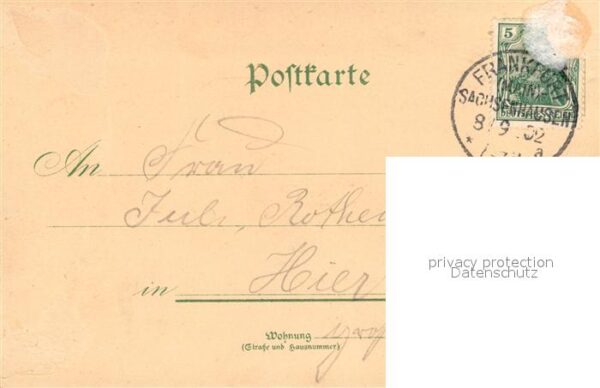 5
Postkarte
FRANKFURT
SACHSENHAUSEN
8 9 02
a
An Frau
Jul. Rothen
in Hier
privacy protection
Datenschutz
Wohnung
(Straße und Hausnummer)